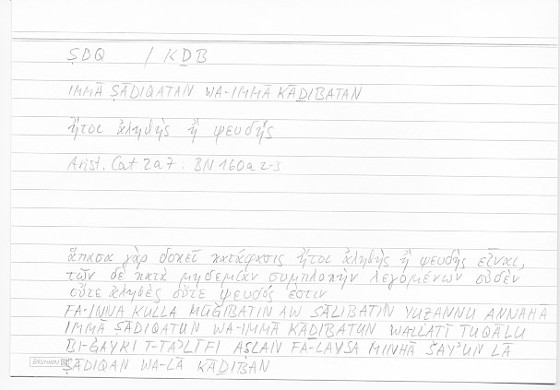 ṢDQ / KḎB
IMMĀ ṢĀDIQATAN WA-IMMĀ KĀḎIBATAN
ἤτοι ἀληθὴς ἢ ψευδής
Arist. Cat 2a7 : BN 160a2-3
ἅπασα γὰρ δοκεῖ κατάφασις ἤτοι ἀληθὴς ἢ ψευδὴς εἶναι,
τῶν δὲ κατὰ μηδεμίαν συμπλοκὴν λεγομένων οὐδὲν
οὔτε ἀληθὲς οὔτε ψεῦδός ἐστιν
FA-INNA KULLA MŪǦIBATIN AW SĀLIBATIN YUẒANNU ANNAHĀ
IMMĀ ṢĀDIQATUN WA-IMMĀ KĀḎIBATUN WALLATĪ TUQĀLU
BI-ĠAYRI T-TAʾLĪFI AṢLAN FA-LAYSA MINHĀ ŠAYʾUN LĀ
ṢĀDIQAN WA-LĀ KĀḎIBAN